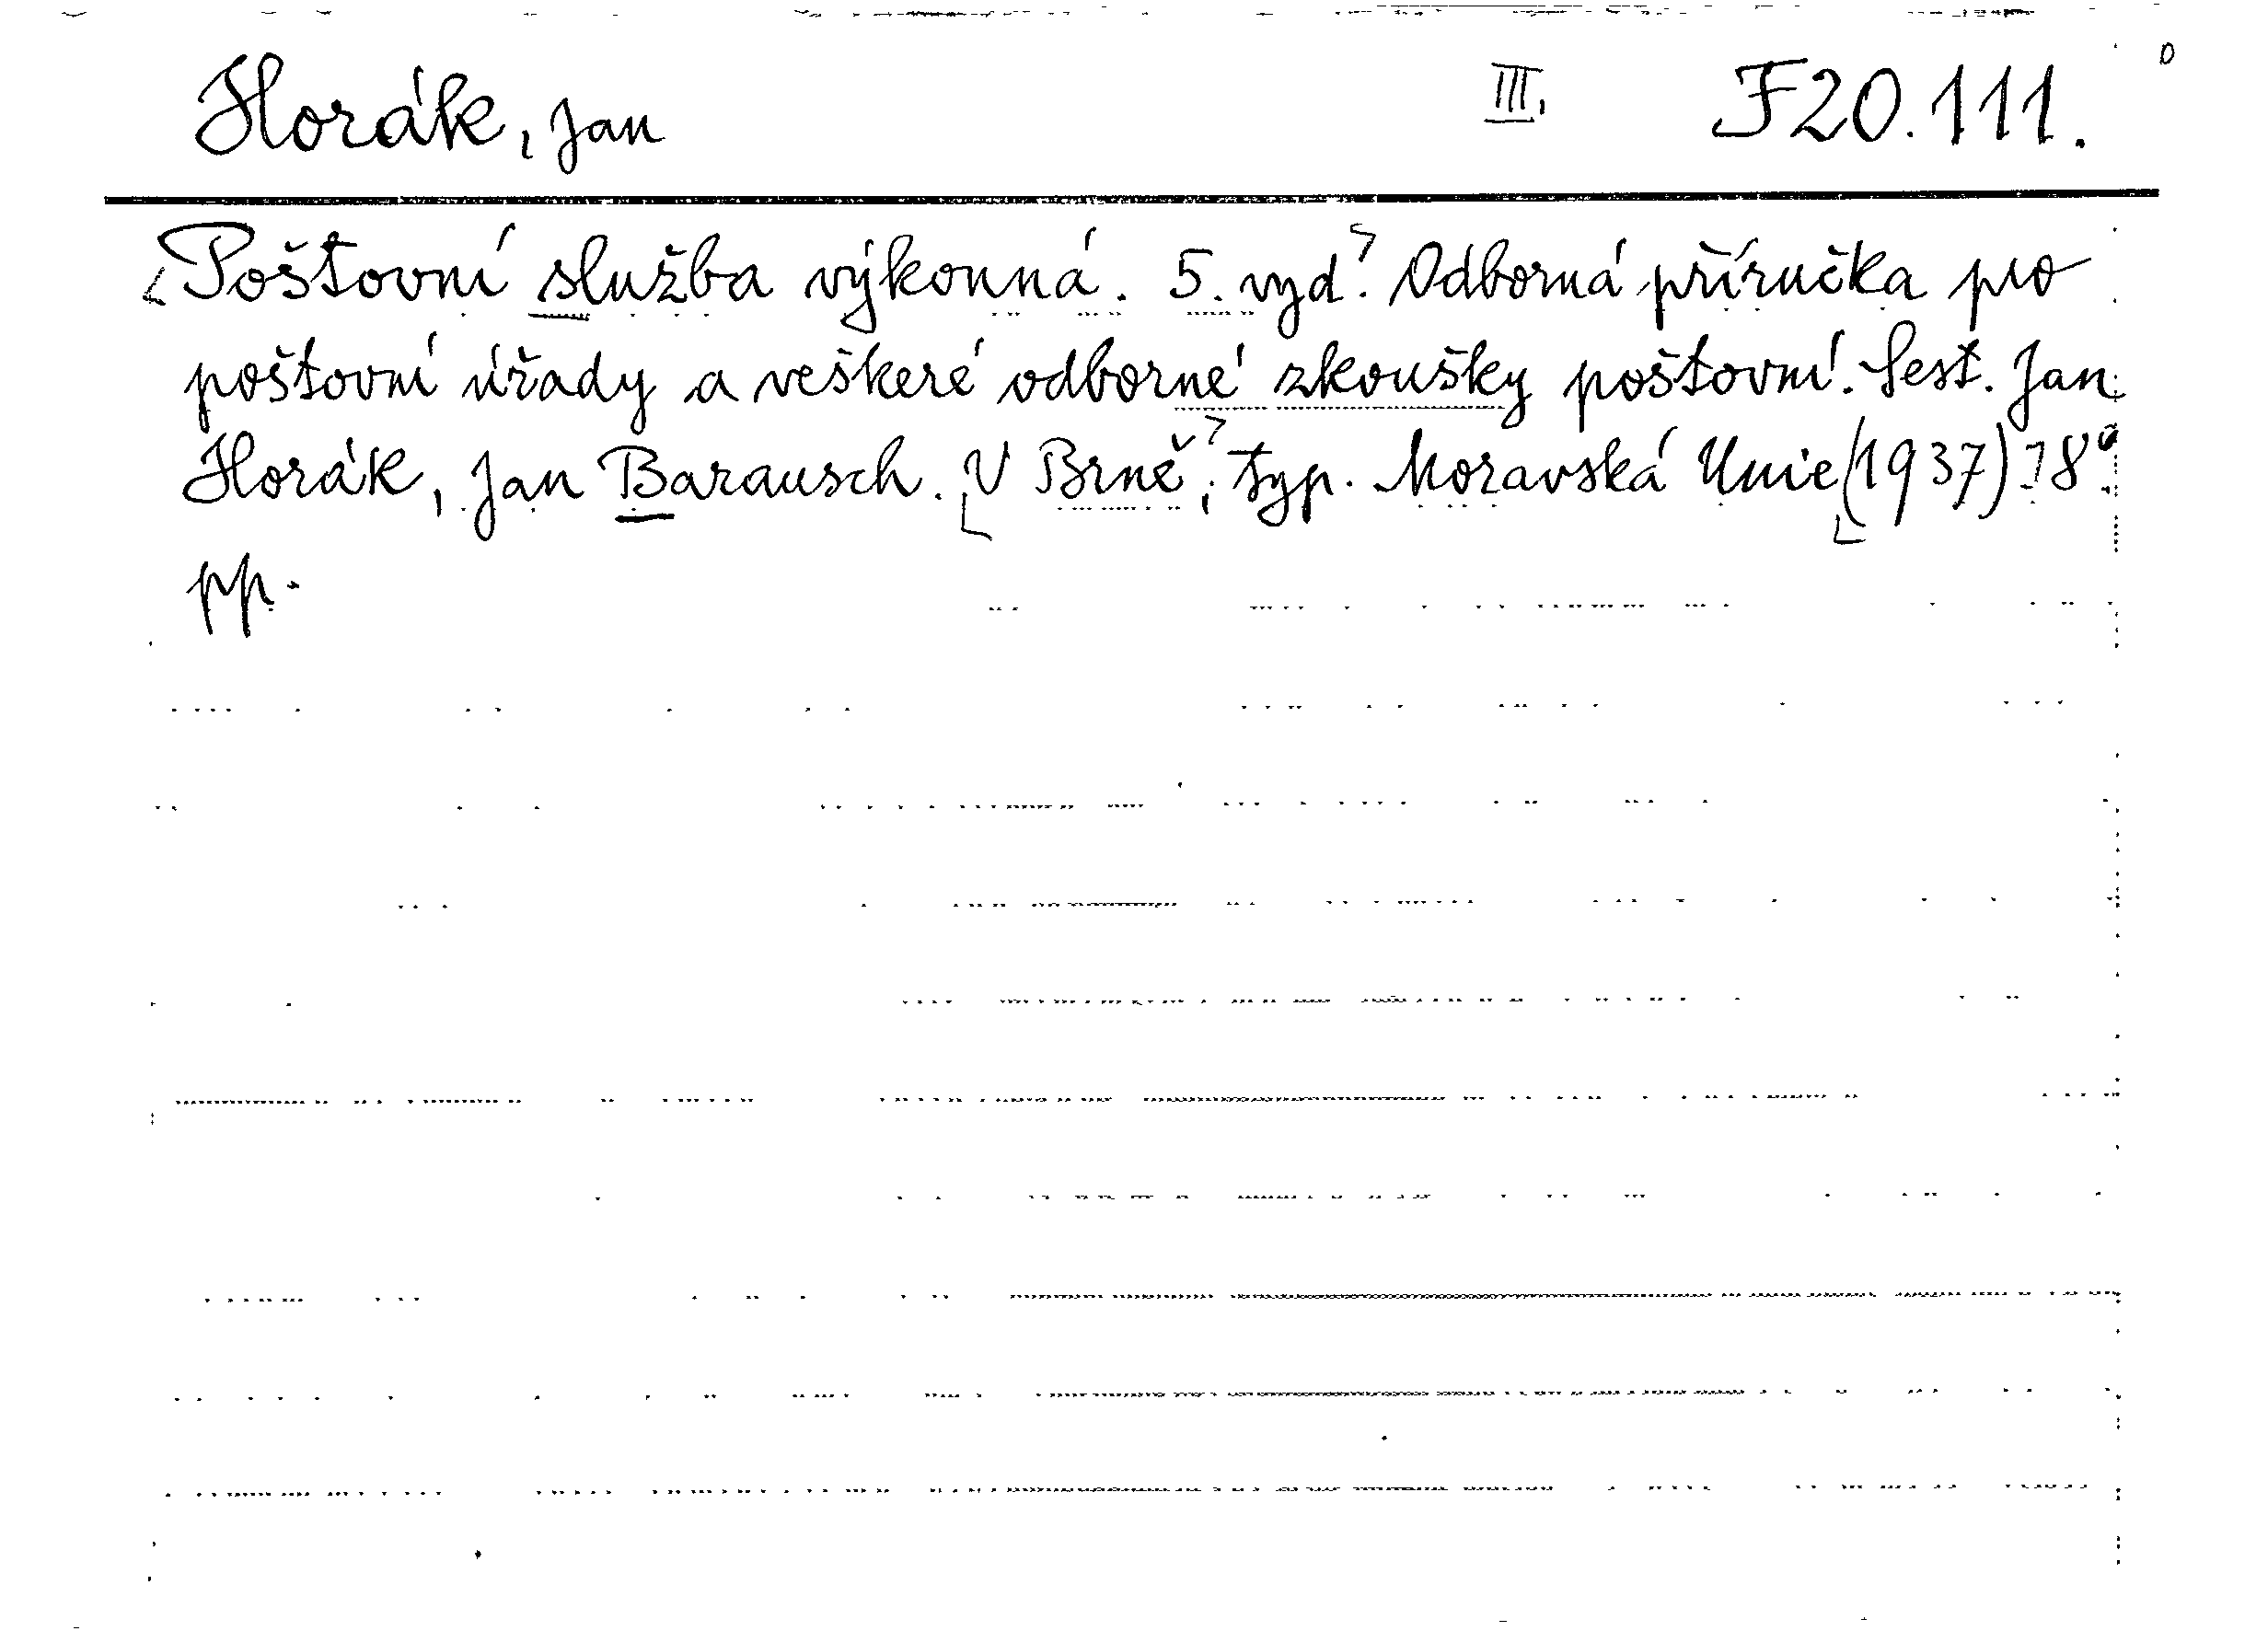 Horák, Jan III. F20.111.
Poštovní služba výkonná. 5. vyd. Odborná příručka pro
poštovní úřady a veškeré odborné zkoušky poštovní. Sest. Jan
Horák, Jan Barausch. V Brně, typ. Moravská Unie (1937) 8°
pp.